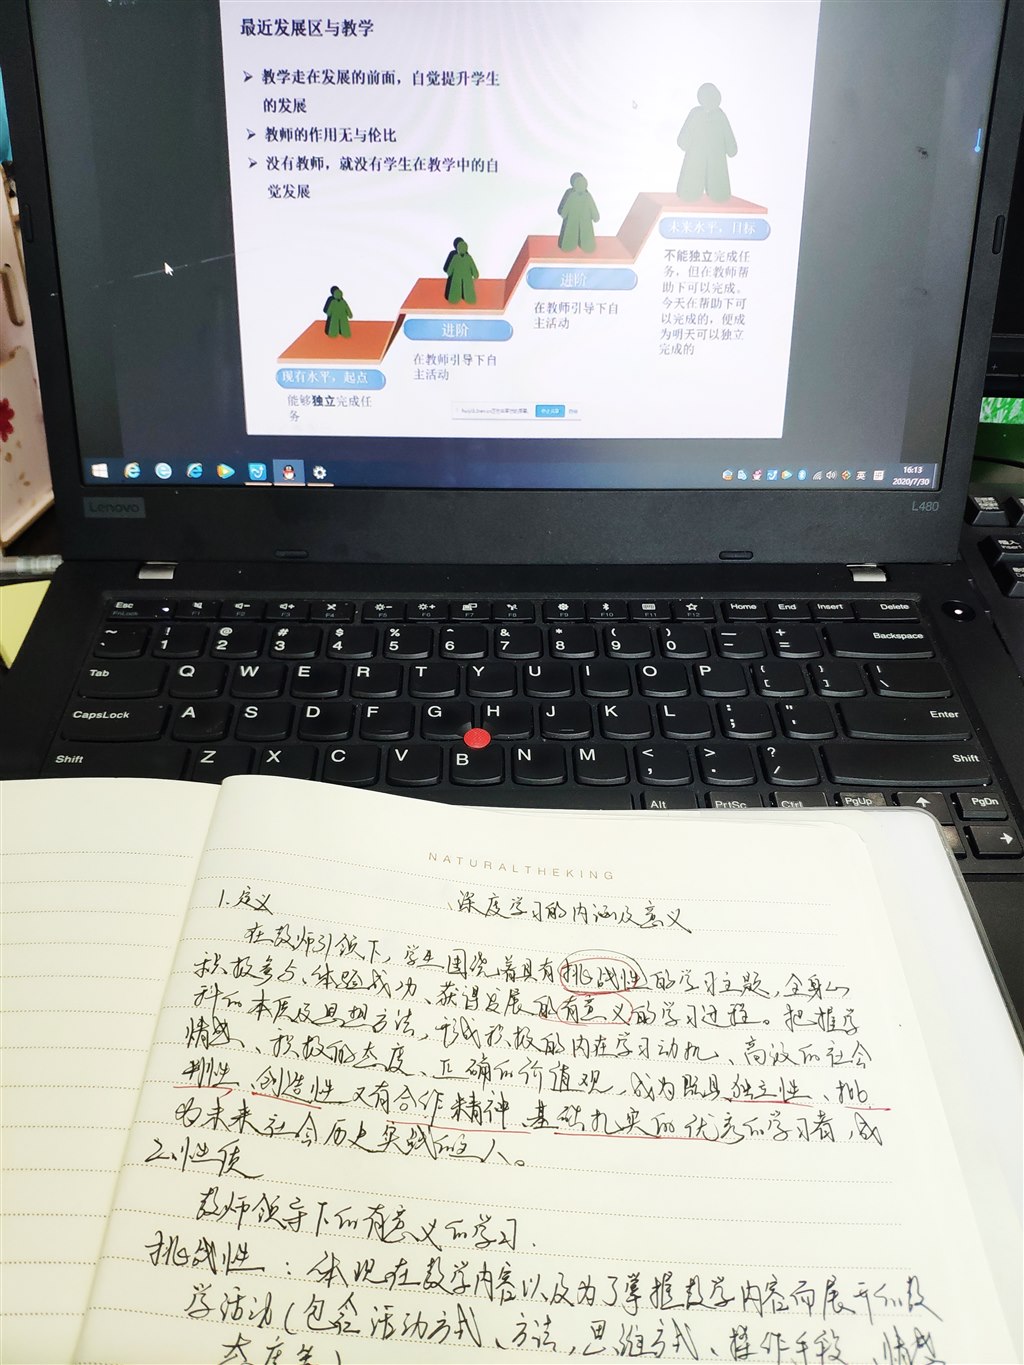 最近发展区与教学
➢ 教学走在发展的前面，自觉提升学生
的发展
➢ 教师的作用无与伦比
➢ 没有教师，就没有学生在教学中的自
觉发展
未来水平，目标
不能独立完成任
务，但在教师帮
助下可以完成。
今天在帮助下可
以完成的，便成
为明天可以独立
完成的
进阶
在教师引导下自
主活动
进阶
在教师引导下自
主活动
现有水平，起点
能够独立完成任
务
英
16:13
2020/7/30
Lenovo
L480
Esc F1 F2 F3 F4 F5 F6 F7 F8 F9 F10 F11 F12 Home End Insert Delete
FnLock
~ ` ! 1 @ 2 # 3 $ 4 % 5 ^ 6 & 7 * 8 ( 9 ) 0 — - + = Backspace
Tab Q W E R T Y U I O P { [ } ] | \
CapsLock A S D F G H J K L : ; " ' Enter
Shift Z X C V B N M < , > . ? / Shift
Alt PrtSc Ctrl PgUp PgDn
插入
Insert
NATURALTHEKING
深度学习的内涵及意义
1.定义
在教师引领下，学生围绕着具有挑战性的学习主题，全身心
积极参与、体验成功、获得发展的有意义的学习过程。把握学
科的本质及思想方法，形成积极的内在学习动机、高效的社会
情感、积极的态度、正确的价值观，成为既具独立性、批
判性、创造性又有合作精神、基础扎实的优秀的学习者，成
为未来社会历史实践的主人。
2.性质
教师领导下的有意义的学习.
挑战性：体现在教学内容以及为了掌握教学内容而展开的教
学活动（包含活动方式、方法，思维方式、操作手段、情感
态度等）